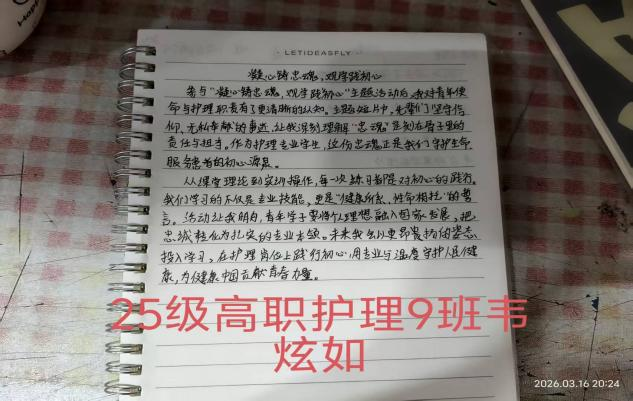 Happy
· LETIDEASFLY ·
凝心铸忠魂，观学践初心
参与“凝心铸忠魂，观学践初心”主题活动后，我对青年使
命与护理职责有了更清晰的认知。主题短片中，先辈们坚守信
仰、无私奉献的事迹，让我深刻理解“忠魂”是刻在骨子里的
责任与担当。作为护理专业学生，这份忠魂正是我们守护生命、
服务患者的初心源泉。
从课堂理论到实训操作，每一次练习都是对初心的践行。
我们学习的不仅是专业技能，更是“健康所系，性命相托”的誓
言。活动让我明白，青年学子要将个人理想融入国家发展，把
忠诚转化为扎实的专业本领。未来我会以更昂扬的姿态
投入学习，在护理岗位上践行初心，用专业与温度守护人民健
康，为健康中国贡献青春力量。
25级高职护理9班韦
炫如
2026.03.16 20:24